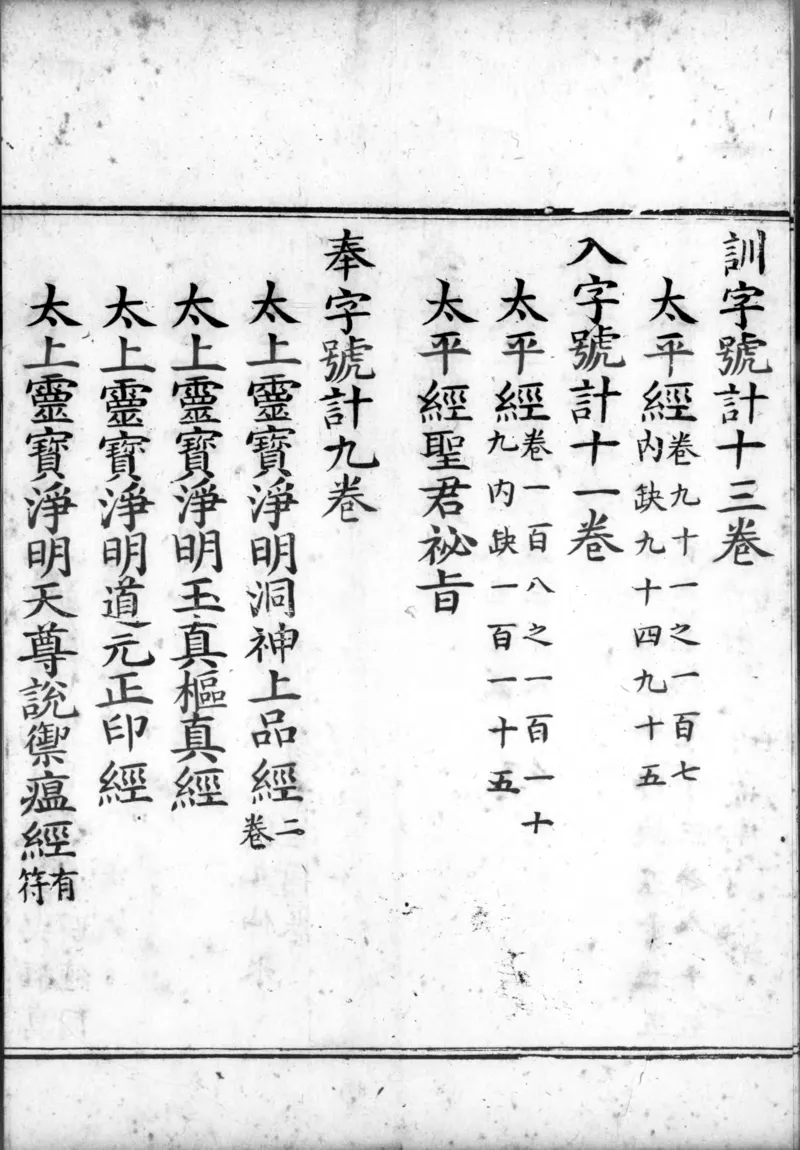 訓字號計十三卷
太平經卷九十一之一百七內缺九十四九十五
入字號計十一卷
太平經卷一百八之一百一十九內缺一百一十五
太平經聖君祕旨
奉字號計九卷
太上靈寶淨明洞神上品經二卷
太上靈寶淨明玉真樞真經
太上靈寶淨明道元正印經
太上靈寶淨明天尊說禦瘟經有符